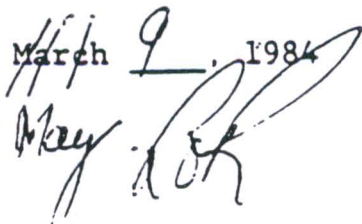 March 9, 1984
Okay